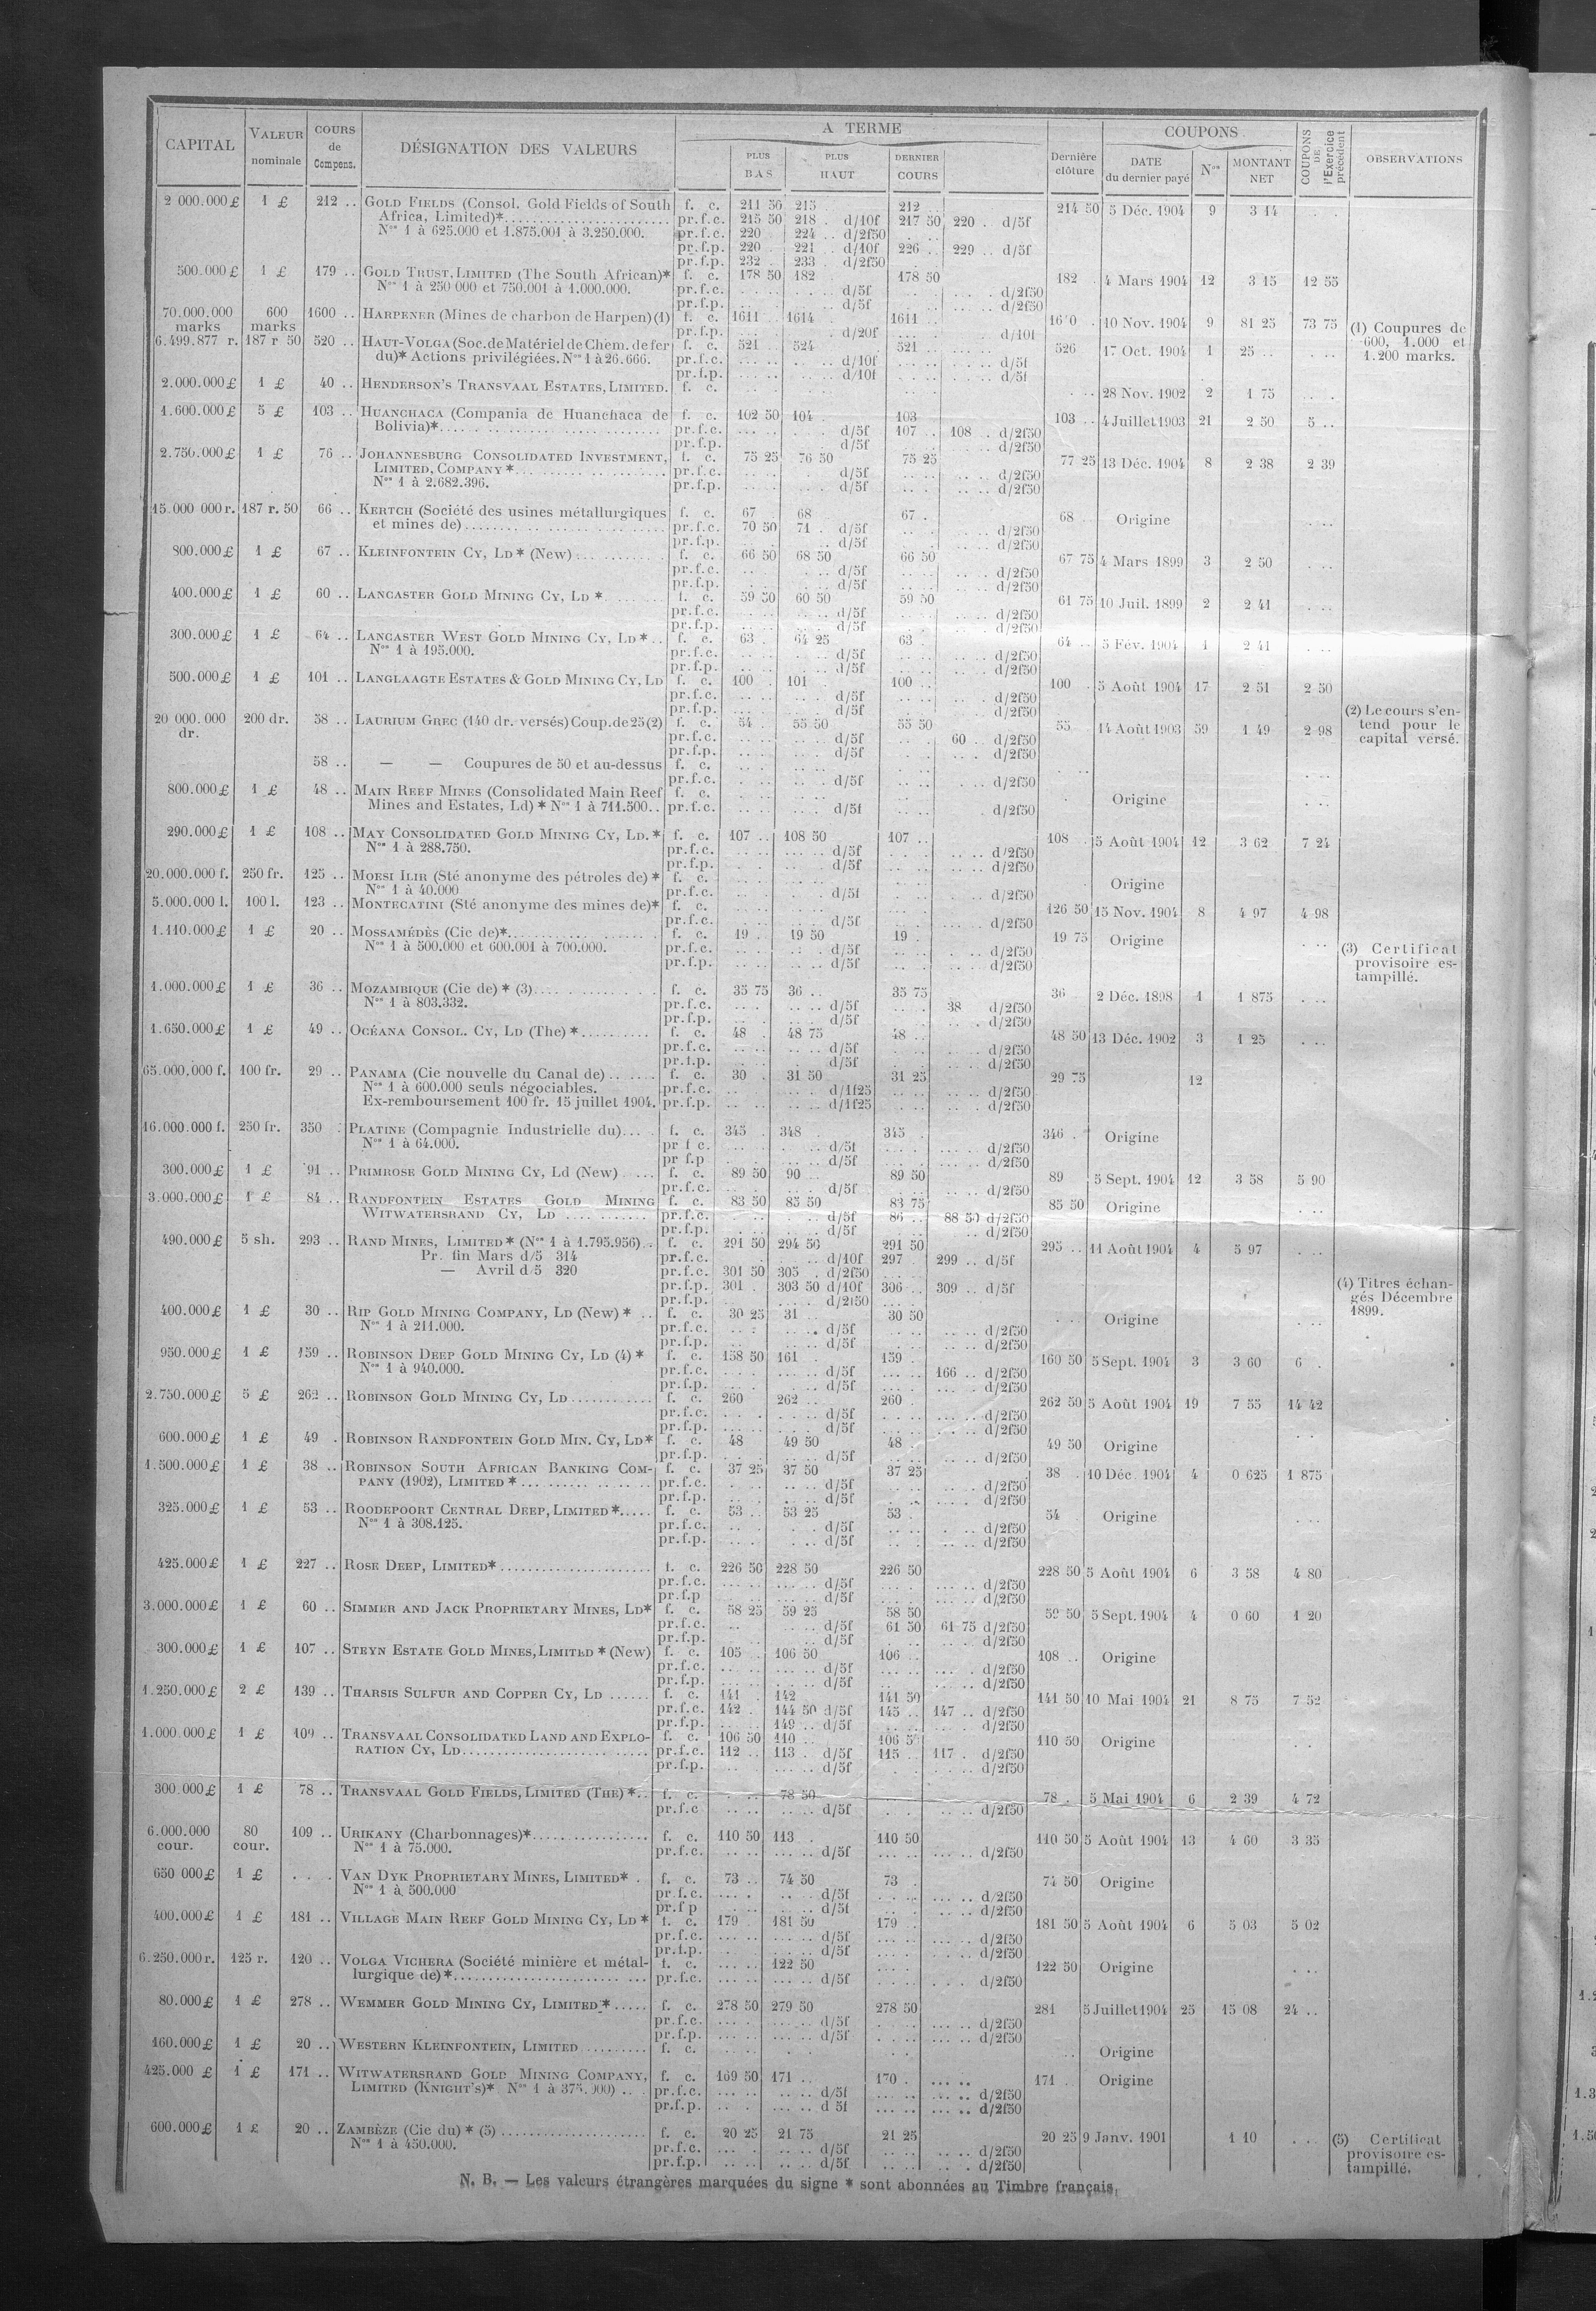 CAPITAL VALEUR nominale COURS de Compens. DÉSIGNATION DES VALEURS A TERME PLUS BAS PLUS HAUT DERNIER COURS Dernière clôture COUPONS DATE du dernier payé Nos MONTANT NET COUPONS DE l'Exercice précédent OBSERVATIONS
2 000.000 £ 1 £ 212 .. GOLD FIELDS (Consol. Gold Fields of South f. c. 211 50 215 212 .. 214 50 5 Déc. 1904 9 3 14
Africa, Limited)* pr.f.c. 215 50 218 . d/10f 217 50 220 . d/5f
Nos 1 à 625.000 et 1.875.001 à 3.250.000. pr.f.c. 220 224 .. d/2f50
pr.f.p. 220 221 d/10f 226 .. 229 .. d/5f
pr.f.p. 232 . 233 . d/2f50
500.000 £ 1 £ 179 .. GOLD TRUST, LIMITED (The South African)* f. c. 178 50 182 178 50 182 4 Mars 1904 12 3 15 12 55
Nos 1 à 250 000 et 750.001 à 1.000.000. pr.f.c. d/5f d/2f50
pr.f.p. d/5f d/2f50
70.000.000 marks 600 marks 1600 .. HARPENER (Mines de charbon de Harpen) (1) f. c. 1611 .. 1614 1611 .. 10 Nov. 1904 9 81 25 73 75 (1) Coupures de
pr.f.p. d/20f d/10f 600, 1.000 et
6.499.877 r. 187 r 50 520 .. HAUT-VOLGA (Soc. de Matériel de Chem. de fer f. c. 521 524 521 526 17 Oct. 1904 1 25 .. 1.200 marks.
du)* Actions privilégiées. Nos 1 à 26.666. pr.f.c. d/10f d/5f
pr.f.p. d/10f d/5f
2.000.000 £ 1 £ 40 .. HENDERSON'S TRANSVAAL ESTATES, LIMITED. f. c. 28 Nov. 1902 2 1 75
1.600.000 £ 5 £ 103 .. HUANCHACA (Compania de Huanchaca de f. c. 102 50 104 103 103 .. 4 Juillet 1903 21 2 50 5 ..
Bolivia)* pr.f.c. d/5f 107 .. 108 . d/2f50
pr.f.p. d/5f d/2f50
2.750.000 £ 1 £ 76 .. JOHANNESBURG CONSOLIDATED INVESTMENT, f. c. 75 25 76 50 75 25 77 25 13 Déc. 1904 8 2 38 2 39
LIMITED, COMPANY * pr.f.c. d/5f d/2f50
Nos 1 à 2.682.396. pr.f.p. d/5f d/2f50
15.000 000 r. 187 r. 50 66 .. KERTCH (Société des usines métallurgiques f. c. 67 68 67 . 68 Origine
et mines de) pr.f.c. 70 50 71 . d/5f d/2f50
pr.f.p. d/5f d/2f50
800.000 £ 1 £ 67 .. KLEINFONTEIN CY, LD * (New) f. c. 66 50 68 50 66 50 67 75 4 Mars 1899 3 2 50
pr.f.c. d/5f d/2f50
pr.f.p. d/5f d/2f50
400.000 £ 1 £ 60 .. LANCASTER GOLD MINING CY, LD * f. c. 59 50 60 50 59 50 61 75 10 Juil. 1899 2 2 41
pr.f.c. d/5f d/2f50
pr.f.p. d/5f d/2f50
300.000 £ 1 £ 64 .. LANCASTER WEST GOLD MINING CY, LD * f. c. 63 . 64 25 63 . 64 .. 5 Fév. 1904 1 2 41
Nos 1 à 195.000. pr.f.c. d/5f d/2f50
pr.f.p. d/5f d/2f50
500.000 £ 1 £ 101 .. LANGLAAGTE ESTATES & GOLD MINING CY, LD f. c. 100 101 100 .. 100 . 5 Août 1904 17 2 51 2 50
pr.f.c. d/5f d/2f50
pr.f.p. d/5f d/2f50
20 000.000 dr. 200 dr. 58 .. LAURIUM GREC (140 dr. versés) Coup. de 25 (2) f. c. 54 . 55 50 55 50 55 14 Août 1903 59 1 49 2 98 (2) Le cours s'en-
pr.f.c. d/5f 60 .. d/2f50 tend pour le
pr.f.p. d/5f d/2f50 capital versé.
58 .. — — Coupures de 50 et au-dessus f. c.
pr.f.c. d/5f d/2f50
800.000 £ 1 £ 48 .. MAIN REEF MINES (Consolidated Main Reef f. c. Origine
Mines and Estates, Ld) * Nos 1 à 711.500.. pr.f.c. d/5f d/2f50
290.000 £ 1 £ 108 .. MAY CONSOLIDATED GOLD MINING CY, LD. * f. c. 107 .. 108 50 107 .. 108 5 Août 1904 12 3 62 7 24
Nos 1 à 288.750. pr.f.c. d/5f d/2f50
pr.f.p. d/5f d/2f50
20.000.000 f. 250 fr. 125 .. MOESI ILIR (Sté anonyme des pétroles de) * f. c. Origine
Nos 1 à 40.000 pr.f.c. d/5f d/2f50
5.000.000 l. 100 l. 123 .. MONTECATINI (Sté anonyme des mines de)* f. c. 126 50 15 Nov. 1904 8 4 97 4 98
pr.f.c. d/5f d/2f50
1.110.000 £ 1 £ 20 .. MOSSAMÉDÈS (Cie de)* f. c. 19 . 19 50 19 . 19 75 Origine
Nos 1 à 500.000 et 600.001 à 700.000. pr.f.c. d/5f d/2f50 (3) Certificat
pr.f.p. d/5f d/2f50 provisoire es-
tampillé.
1.000.000 £ 1 £ 36 .. MOZAMBIQUE (Cie de) * (3) f. c. 35 75 36 .. 35 75 36 2 Déc. 1898 1 1 875
Nos 1 à 803.332. pr.f.c. d/5f 38 d/2f50
pr.f.p. d/5f d/2f50
1.650.000 £ 1 £ 49 .. OCÉANA CONSOL. CY, LD (The) * f. c. 48 . 48 75 48 .. 48 50 13 Déc. 1902 3 1 25
pr.f.c. d/5f d/2f50
pr.f.p. d/5f d/2f50
65.000.000 f. 100 fr. 29 .. PANAMA (Cie nouvelle du Canal de) f. c. 30 . 31 50 31 25 29 75 12
Nos 1 à 600.000 seuls négociables. pr.f.c. d/1f25 d/2f50
Ex-remboursement 100 fr. 15 juillet 1904. pr.f.p. d/1f25 d/2f50
16.000.000 f. 250 fr. 350 PLATINE (Compagnie Industrielle du) f. c. 345 . 348 345 . 346 . Origine
Nos 1 à 64.000. pr f c. d/5f d/2f50
pr f.p d/5f d/2f50
300.000 £ 1 £ 91 .. PRIMROSE GOLD MINING CY, Ld (New) f. c. 89 50 90 89 50 89 5 Sept. 1904 12 3 58 5 90
pr.f.c. d/5f d/2f50
3.000.000 £ 1 £ 84 .. RANDFONTEIN ESTATES GOLD MINING f. c. 83 50 85 50 83 75 85 50 Origine
WITWATERSRAND CY, LD pr.f.c. d/5f 86 .. 88 50 d/2f50
pr.f.p. d/5f d/2f50
490.000 £ 5 sh. 293 .. RAND MINES, LIMITED * (Nos 1 à 1.795.956) f. c. 291 50 294 50 291 50 295 .. 11 Août 1904 4 5 97
Pr. fin Mars d/5 314 pr.f.c. d/10f 297 . 299 .. d/5f
— Avril d/5 320 pr.f.c. 301 50 305 . d/2f50
pr.f.p. 301 . 303 50 d/10f 306 .. 309 .. d/5f (4) Titres échan-
pr.f.p. d/2f50 gés Décembre
400.000 £ 1 £ 30 .. RIP GOLD MINING COMPANY, LD (New) * f. c. 30 25 31 30 50 Origine 1899.
Nos 1 à 211.000. pr.f.c. d/5f d/2f50
pr.f.p. d/5f d/2f50
950.000 £ 1 £ 159 .. ROBINSON DEEP GOLD MINING CY, LD (4) * f. c. 158 50 161 159 . 160 50 5 Sept. 1904 3 3 60 6 .
Nos 1 à 940.000. pr.f.c. d/5f 166 .. d/2f50
pr.f.p. d/5f d/2f50
2.750.000 £ 5 £ 262 .. ROBINSON GOLD MINING CY, LD f. c. 260 262 .. 260 . 262 50 5 Août 1904 19 7 55 14 42
pr.f.c. d/5f d/2f50
pr.f.p. d/5f d/2f50
600.000 £ 1 £ 49 . ROBINSON RANDFONTEIN GOLD MIN. CY, LD* f. c. 48 49 50 48 49 50 Origine
pr.f.p. d/5f d/2f50
1.500.000 £ 1 £ 38 .. ROBINSON SOUTH AFRICAN BANKING COM- f. c. 37 25 37 50 37 25 38 . 10 Déc. 1904 4 0 625 1 875
PANY (1902), LIMITED * pr.f.c. d/5f d/2f50
pr.f.p. d/5f d/2f50
325.000 £ 1 £ 53 .. ROODEPOORT CENTRAL DEEP, LIMITED * f. c. 53 .. 53 25 53 . 54 Origine
Nos 1 à 308.125. pr.f.c. d/5f d/2f50
pr.f.p. d/5f d/2f50
425.000 £ 1 £ 227 .. ROSE DEEP, LIMITED* f. c. 226 50 228 50 226 50 228 50 5 Août 1904 6 3 58 4 80
pr.f.c. d/5f d/2f50
pr.f.p d/5f d/2f50
3.000.000 £ 1 £ 60 .. SIMMER AND JACK PROPRIETARY MINES, LD* f. c. 58 25 59 25 58 50 59 50 5 Sept. 1904 4 0 60 1 20
pr.f.c. d/5f 61 50 61 75 d/2f50
pr.f.p. d/5f d/2f50
300.000 £ 1 £ 107 .. STEYN ESTATE GOLD MINES, LIMITED * (New) f. c. 105 . 106 50 106 .. 108 .. Origine
pr.f.c. d/5f d/2f50
pr.f.p. d/5f d/2f50
1.250.000 £ 2 £ 139 .. THARSIS SULFUR AND COPPER CY, LD f. c. 141 . 142 141 50 141 50 10 Mai 1904 21 8 75 7 52
pr.f.c. 142 . 144 50 d/5f 145 .. 147 .. d/2f50
pr.f.p. 149 .. d/5f d/2f50
1.000.000 £ 1 £ 109 .. TRANSVAAL CONSOLIDATED LAND AND EXPLO- f. c. 106 50 110 .. 106 50 110 50 Origine
RATION CY, LD pr.f.c. 112 .. 113 . d/5f 115 .. 117 . d/2f50
pr.f.p. d/5f d/2f50
300.000 £ 1 £ 78 .. TRANSVAAL GOLD FIELDS, LIMITED (THE) * f. c. 78 50 78 . 5 Mai 1904 6 2 39 4 72
pr.f.c d/5f d/2f50
6.000.000 cour. 80 cour. 109 .. URIKANY (Charbonnages)* f. c. 110 50 113 . 110 50 110 50 5 Août 1904 13 4 60 3 35
Nos 1 à 75.000. pr.f.c. d/5f d/2f50
650 000 £ 1 £ VAN DYK PROPRIETARY MINES, LIMITED* f. c. 73 .. 74 50 73 . 74 50 Origine
Nos 1 à 500.000 pr.f.c. d/5f d/2f50
pr.f p d/5f d/2f50
400.000 £ 1 £ 181 .. VILLAGE MAIN REEF GOLD MINING CY, LD * f. c. 179 . 181 50 179 .. 181 50 5 Août 1904 6 5 03 5 02
pr.f.c. d/5f d/2f50
pr.f.p. d/5f d/2f50
6.250.000 r. 125 r. 120 .. VOLGA VICHERA (Société minière et métal- f. c. 122 50 122 50 Origine
lurgique de) * pr.f.c. d/5f d/2f50
80.000 £ 1 £ 278 .. WEMMER GOLD MINING CY, LIMITED * f. c. 278 50 279 50 278 50 281 5 Juillet 1904 25 15 08 24 ..
pr.f.c. d/5f d/2f50
pr.f.p. d/5f d/2f50
160.000 £ 1 £ 20 .. WESTERN KLEINFONTEIN, LIMITED f. c. Origine
425.000 £ 1 £ 171 .. WITWATERSRAND GOLD MINING COMPANY, f. c. 169 50 171 .. 170 . 171 Origine
LIMITED (KNIGHT'S)* Nos 1 à 375.000) pr.f.c. d/5f d/2f50
pr.f.p. d 5f d/2f50
600.000 £ 1 £ 20 .. ZAMBÈZE (Cie du) * (5) f. c. 20 25 21 75 21 25 20 25 9 Janv. 1901 1 10 (5) Certificat
Nos 1 à 450.000. pr.f.c. d/5f d/2f50 provisoire es-
pr.f.p. d/5f d/2f50 tampillé.
N. B. — Les valeurs étrangères marquées du signe * sont abonnées au Timbre français.